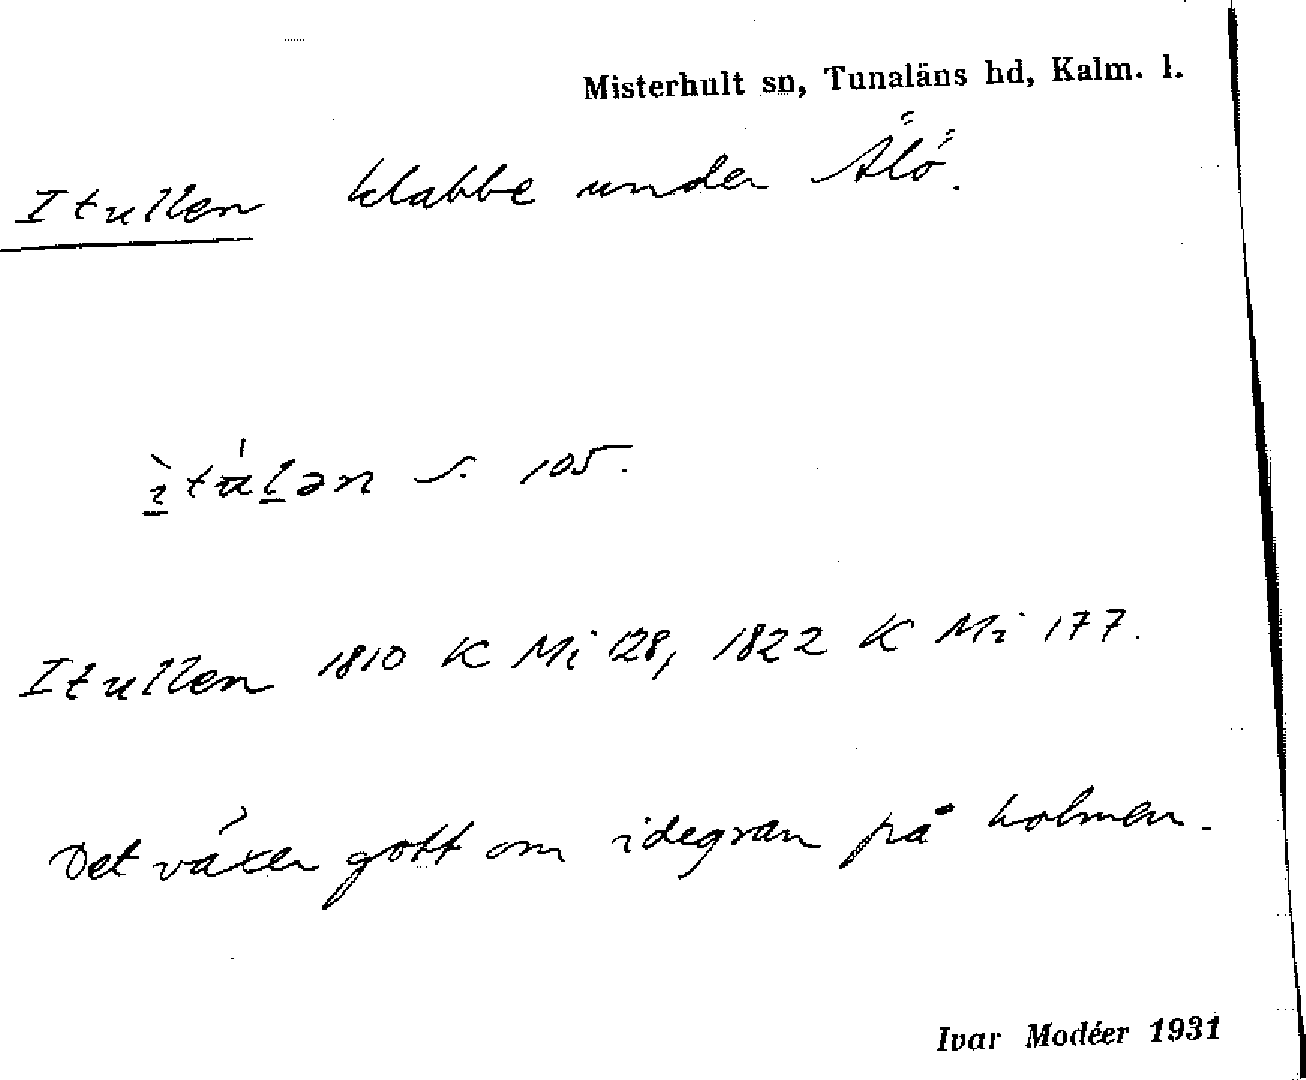 Misterhult sn, Tunaläns hd, Kalm. l.
Itullen klabbe under Älö.
ìtu̇lən s. 105.
Itullen 1810 K Mi 128, 1822 K Mi 177.
Det växer gott om idegran på holmen.
Ivar Modéer 1931